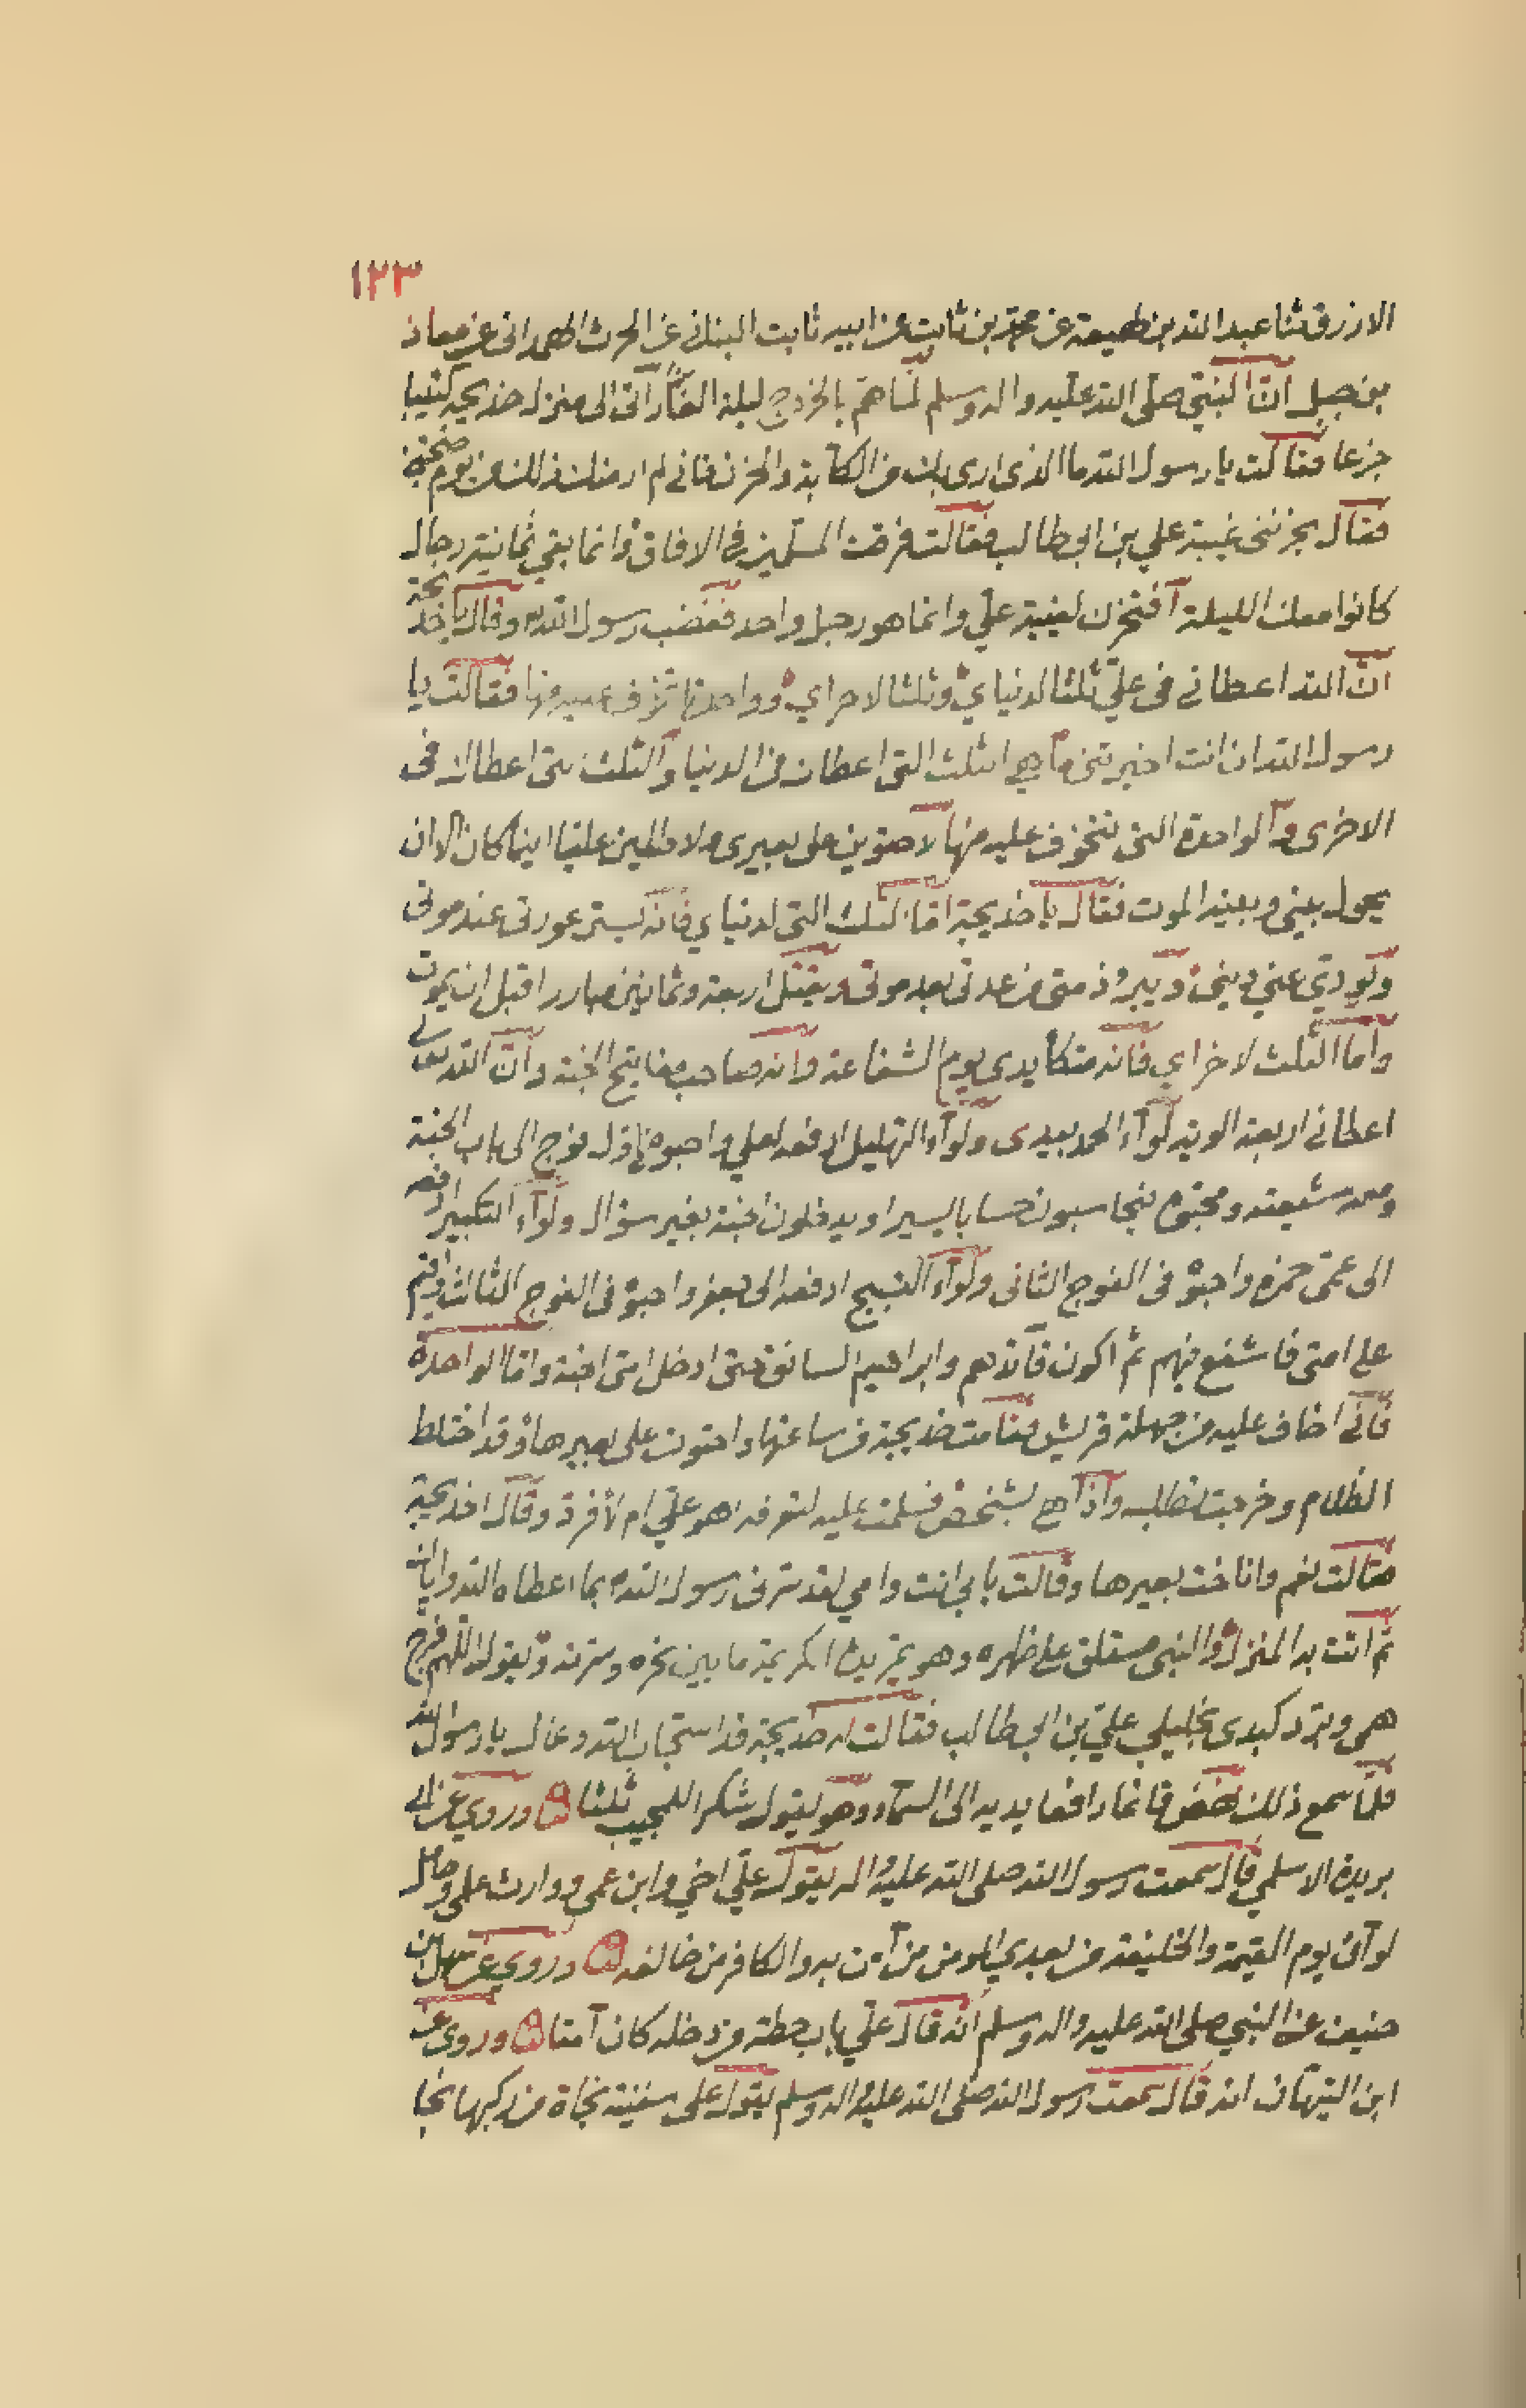 ١٢٣
الازرق ثنا عبد الله بن لهيعة عن محمد بن ثابت عن ابيه ثابت البناني عن الحرث الهمداني عن معاذ
بن جبل ان النبي صلى الله عليه واله وسلم لما هم بالخروج ليلة الغار اتى الى منزل خديجة كئيبا
جزعا فقالت يا رسول الله ما الذي ارى بك من الكآبة والحزن فاني لم ار منك ذلك من يوم صحبتني
فقال يحزنني غيبة علي بن ابي طالب فقالت فرقت المسلمين في الافاق وانما بقي ثمانية رجال
كانوا معك الليلة افتحزن لغيبة علي وانما هو رجل واحد فغضب رسول الله وقال يا خديجة
ان الله اعطاني في علي ثلثا لدنياي وثلثا لاخراي وواحدة اتخوف عليه منها فقالت يا
رسول الله ان انت اخبرتني ما هي الثلث التي اعطاك في الدنيا والثلث التي اعطاك في
الاخرى والواحدة التي تتخوف عليه منها لاحتوين على بعيري ولاطلبن عليا اينما كان الا ان
يحول بيني وبينه الموت فقال يا خديجة اما الثلث التي لدنياي فانه يستر عورتي عند موتي
ويؤدي عني ديني ويبرئ ذمتي من عدتي بعد موتي ويقتل اربعة وثمانين مبارزا قبل ان يموت
واما الثلث لاخراي فانه متكأ يدي يوم الشفاعة وانه صاحب مفاتيح الجنة وان الله تعالى
اعطاني اربعة الوية لواء الحمد بيدي ولواء التهليل ادفعه لعلي واحبوه في اول فوج الى باب الجنة
ومعه شيعته ومحبوه يحاسبون حسابا يسيرا ويدخلون الجنة بغير سؤال ولواء التكبير ادفعه
الى عمي حمزه واحبوه في الفوج الثاني ولواء التسبيح ادفعه الى جعفر واحبوه في الفوج الثالث واقيم
على امتي فاشفع فيهم ثم اكون قائدهم وابراهيم السائق حتى ادخل امتي الجنة واما الواحدة
فاني اخاف عليه من جهلة قريش فقامت خديجة من ساعتها واحتوت على بعيرها وقد اختلط
الظلام وخرجت تطلبه واذا هي بشخص فسلمت عليه لتعرفه اهو علي ام لا فرد وقال اخديجة
فقالت نعم واناخت بعيرها وقالت بابي انت وامي لقد سرني رسول الله بما اعطاه الله واياك
ثم اتت به المنزل والنبي مستلق على ظهره وهو يمر يده الكريمة ما بين نحره وسرته ويقول اللهم فرج
همي وبرد كبدي بخليلي علي بن ابي طالب فقالت له خديجة قد استجاب الله دعاك يا رسول الله
فلما سمع ذلك نهض قائما رافعا يديه الى السماء وهو يقول شكرا للمجيب ثلثا وروي عن ابي
بريدة الاسلمي قال سمعت رسول الله صلى الله عليه واله يقول علي اخي وابن عمي ووارث علمي وحامل
لوائي يوم القيمة والخليفة من بعدي المومن من آمن به والكافر من خالفه وروي عن سهل بن
حنيف عن النبي صلى الله عليه واله وسلم انه قال علي باب حطة من دخله كان آمنا وروي عن
ابن التيهان انه قال سمعت رسول الله صلى الله عليه واله وسلم يقول علي سفينة نجاة من ركبها نجا